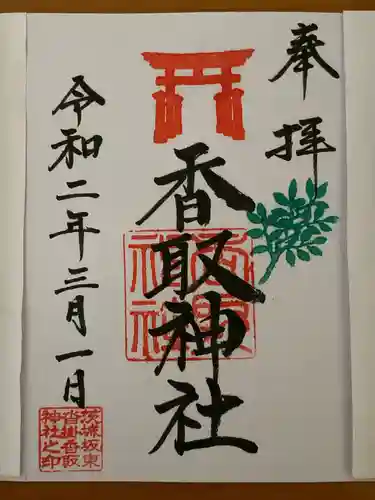 奉拝
香取神社
香取神社
令和二年三月一日
猿嶋坂東
沓掛香取
神社之印